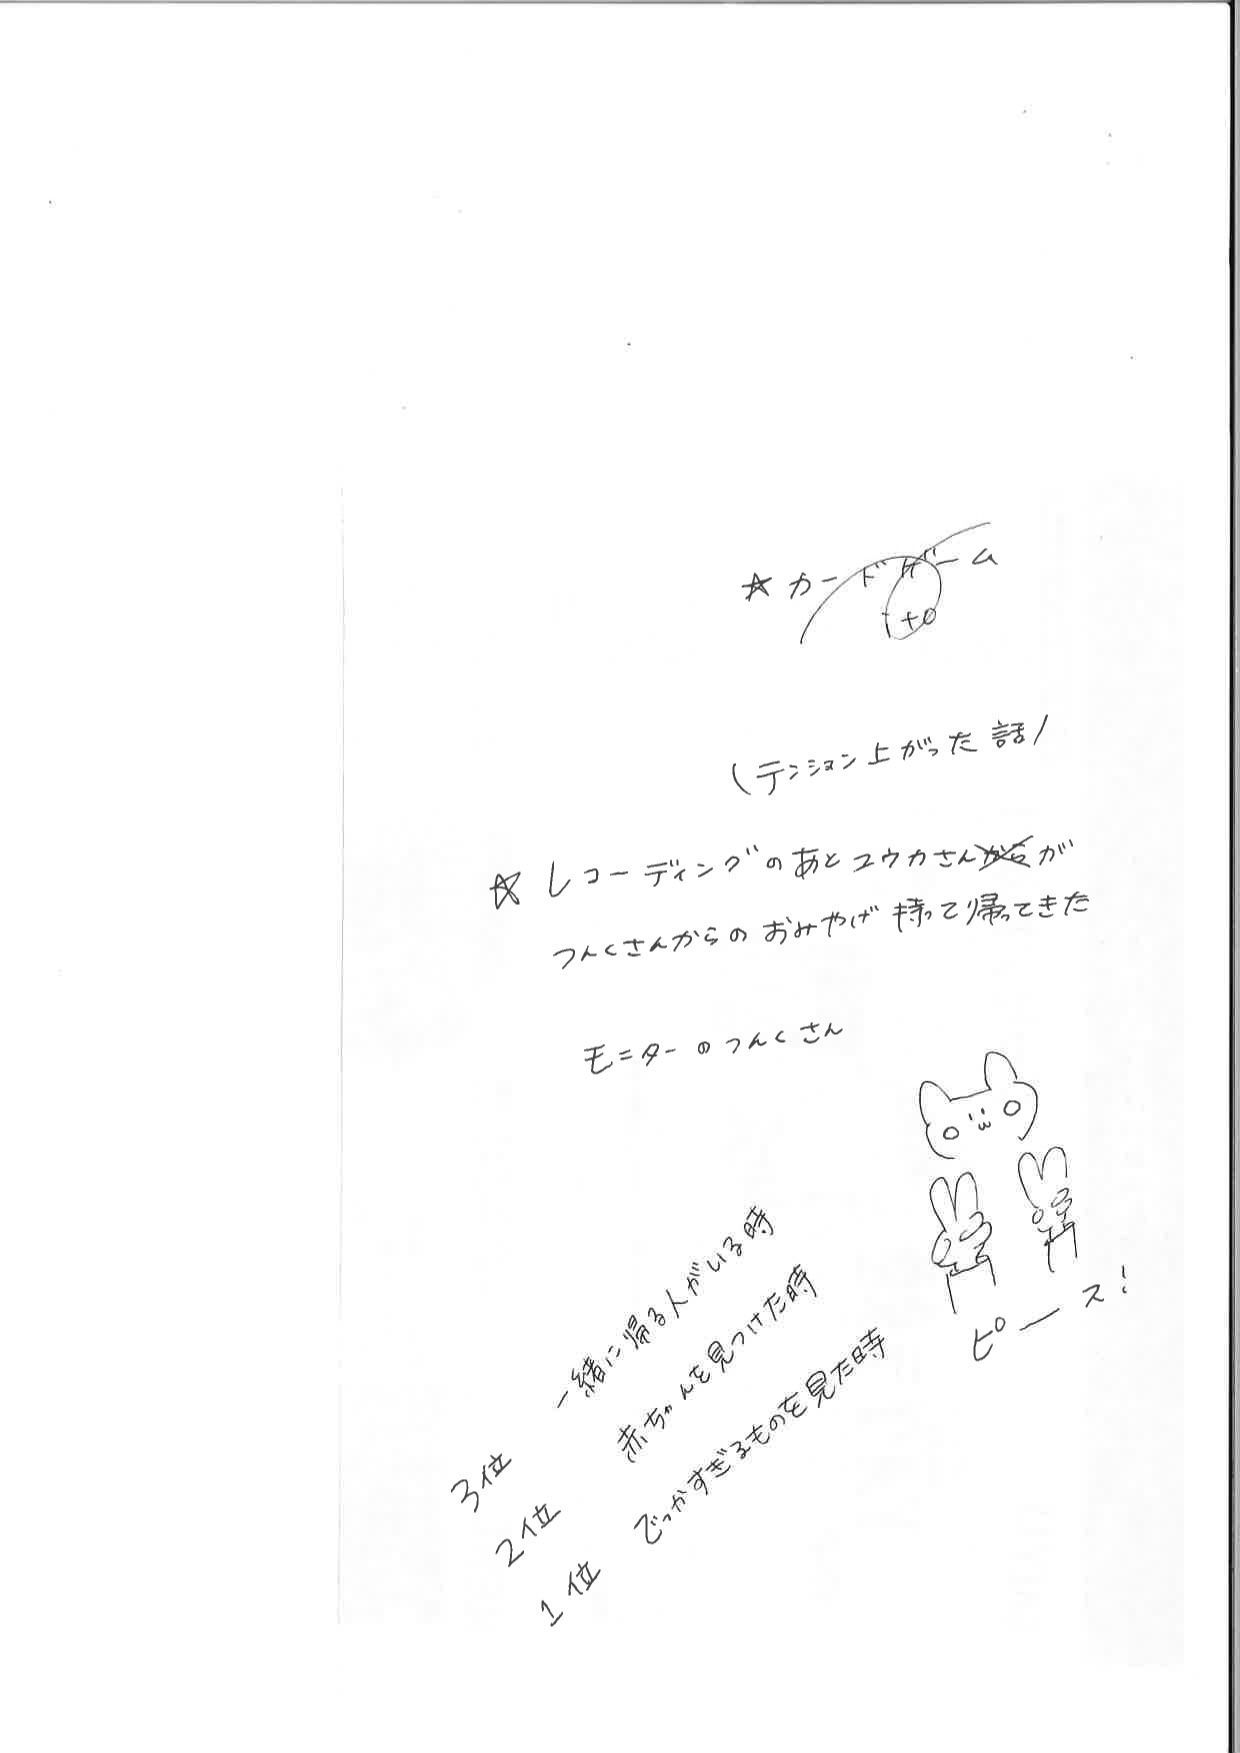 ☆カードゲーム
ito
(テンション上がった話)
☆レコーディングのあとユウカさんからが
つんくさんからのおみやげ持って帰ってきた
モニターのつんくさん
ピース!
3位 一緒に帰る人がいる時
2位 赤ちゃんを見つけた時
1位 でっかすぎるものを見た時